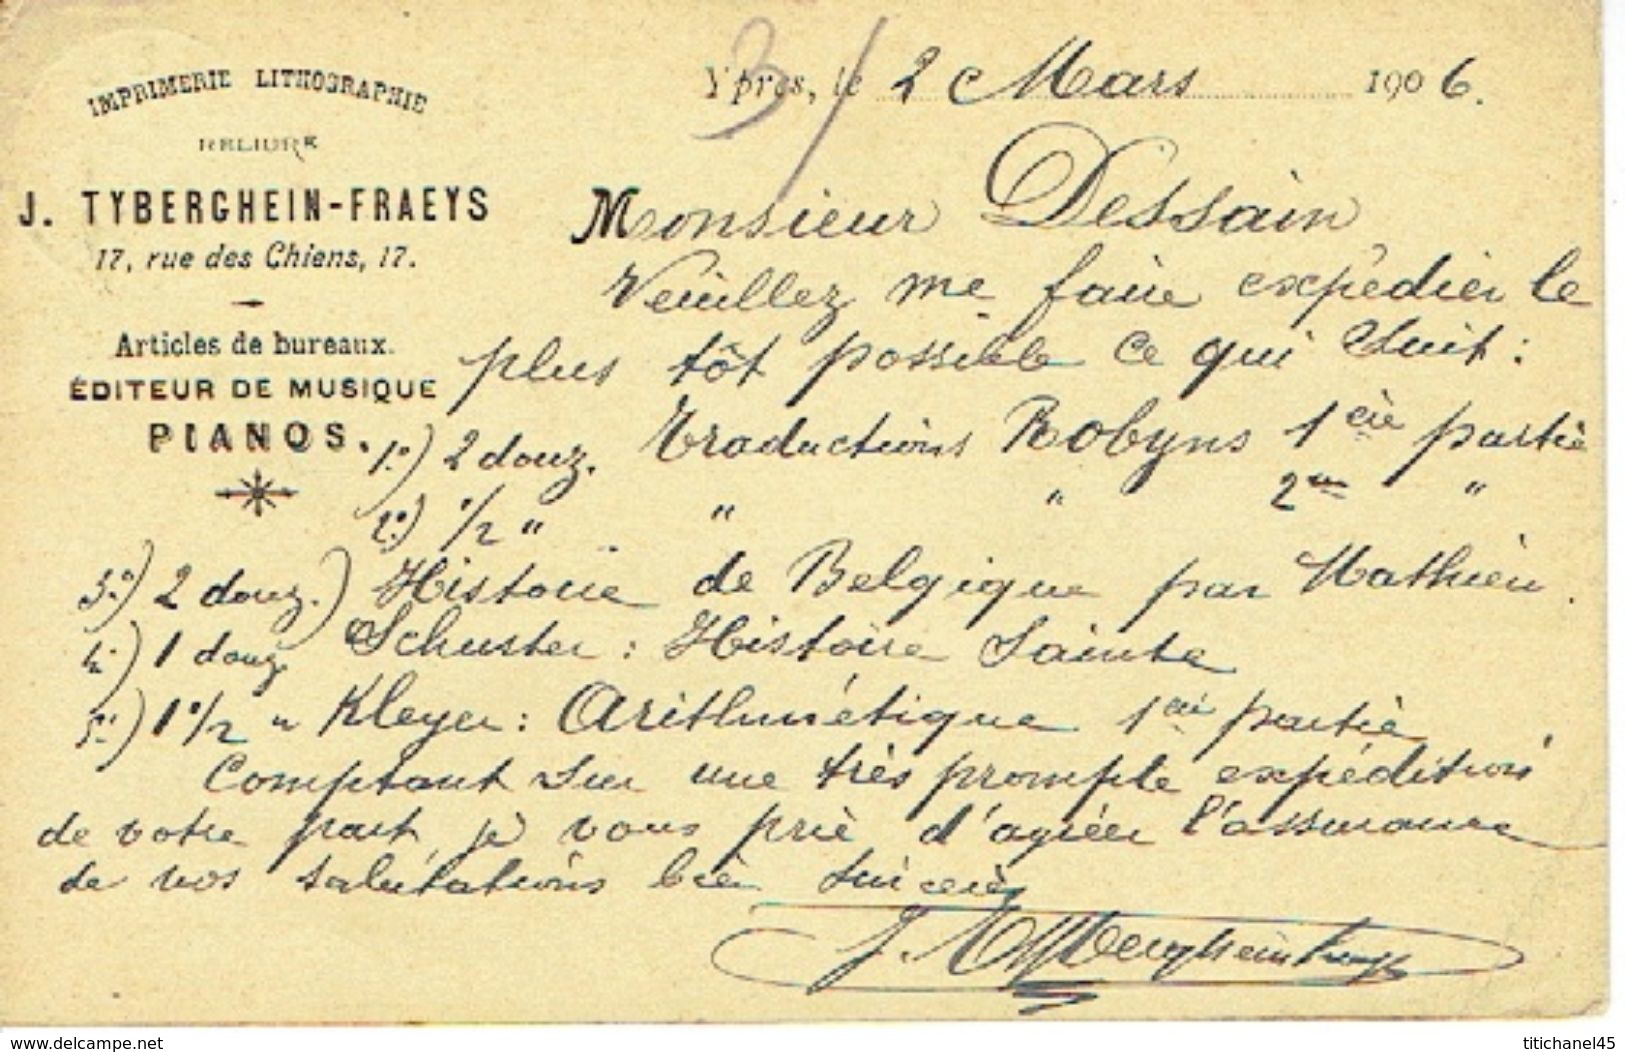 IMPRIMERIE LITHOGRAPHIE
RELIURE
J. TYBERGHEIN-FRAEYS
17, rue des Chiens, 17.
Articles de bureaux.
ÉDITEUR DE MUSIQUE
PIANOS.
Ypres, le 2 Mars 1906.
Monsieur Dessain
Veuillez me faire expédier le
plus tôt possible ce qui suit :
1°.) 2 douz. Traductions Robyns 1ère partie
2°.) 1/2 " " " 2me "
3°.) 2 douz.) Histoire de Belgique par Mathieu.
4°) 1 douz Schuster : Histoire Sainte
5°) 1 1/2 " Kleyer : Arithmétique 1ère partie
Comptant sur une très prompte expédition
de votre part, je vous prie d'agréer l'assurance
de nos salutations bien sincères
J. Tyberghein Fraeys
delcampe.net
titichanel45